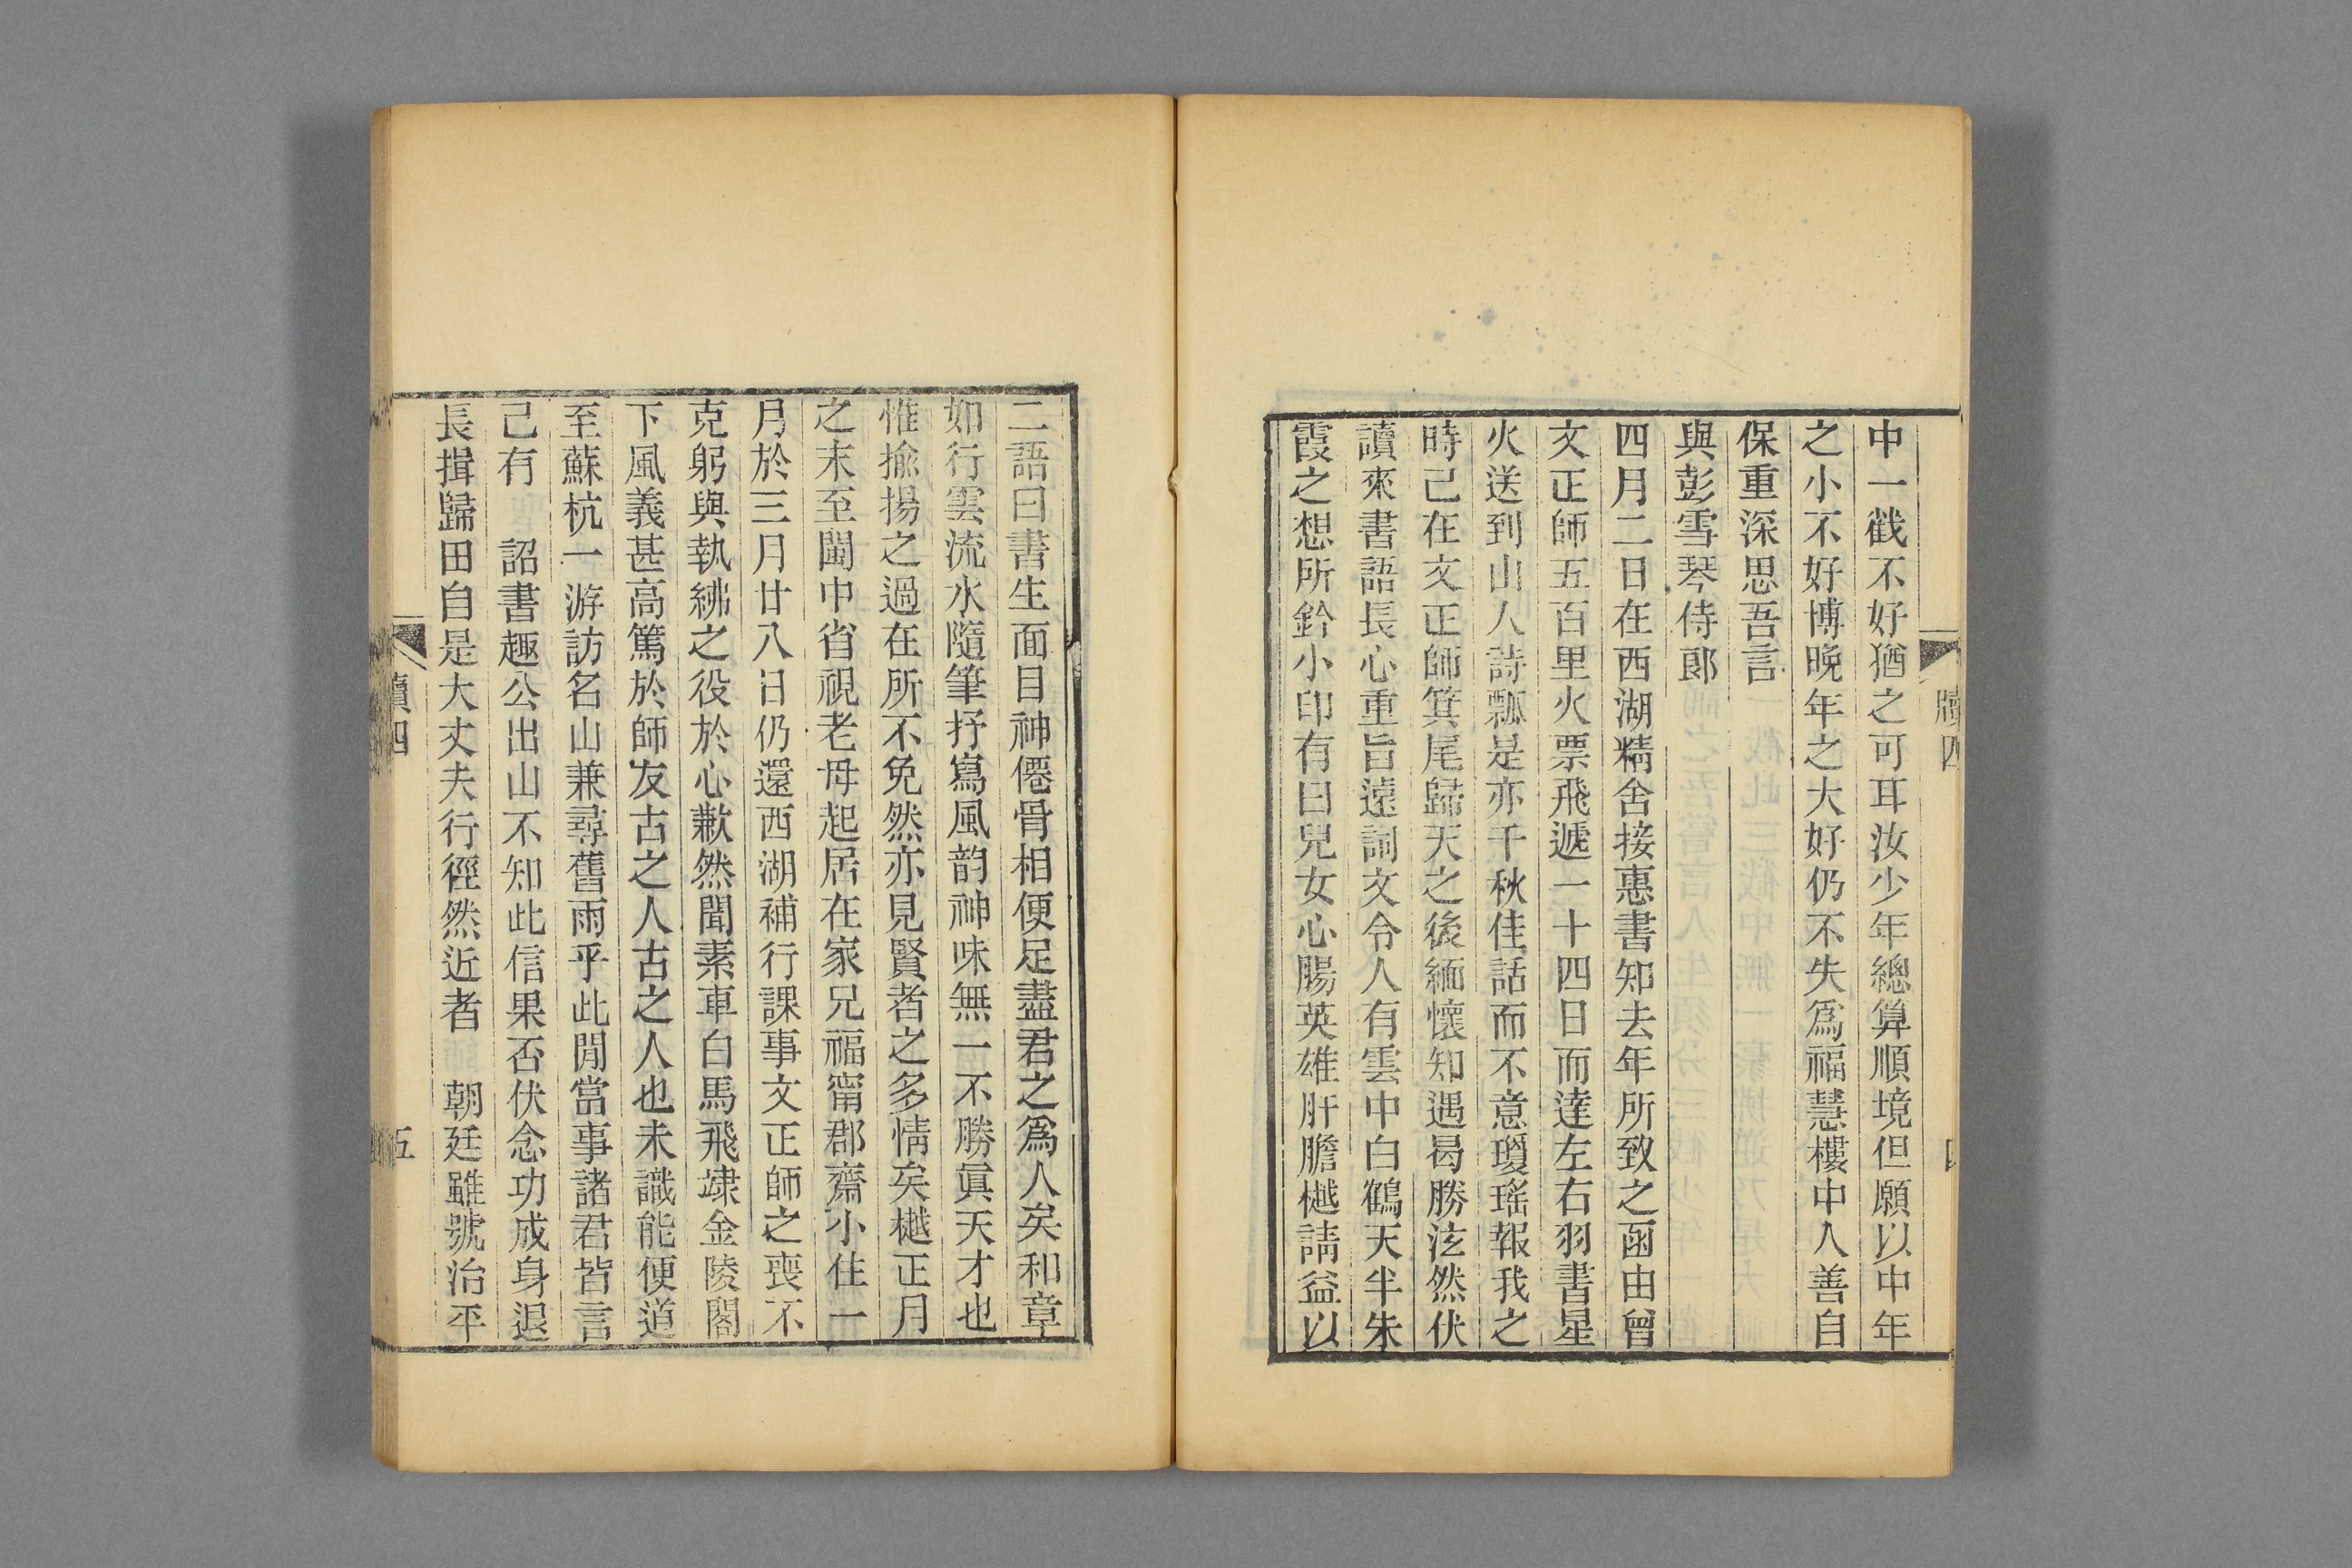 中一戳不好猶之可耳汝少年總算順境但願以中年
之小不好博晚年之大好仍不失爲福慧樓中人善自
保重深思吾言
與彭雪琴侍郎
四月二日在西湖精舍接惠書知去年所致之函由曾
文正師五百里火票飛遞一十四日而達左右羽書星
火送到山人詩瓢是亦千秋佳話而不意瓊瑤報我之
時己在文正師箕尾歸天之後緬懷知遇曷勝泫然伏
讀來書語長心重旨遠詞文令人有雲中白鶴天半朱
霞之想所鈐小印有曰兒女心腸英雄肝膽樾請益以
二語曰書生面目神僊骨相便足盡君之爲人矣和章
如行雲流水隨筆抒寫風韵神味無一不勝眞天才也
惟揄揚之過在所不免然亦見賢者之多情矣樾正月
之末至閩中省視老母起居在家兄福甯郡齋小住一
月於三月廿八日仍還西湖補行課事文正師之喪不
克躬與執紼之役於心歉然聞素車白馬飛𨽻金陵閣
下風義甚高篤於師友古之人古之人也未識能便道
至蘇杭一游訪名山兼尋舊雨乎此間當事諸君皆言
己有　詔書趣公出山不知此信果否伏念功成身退
長揖歸田自是大丈夫行徑然近者　朝廷雖號治平
牘四
五